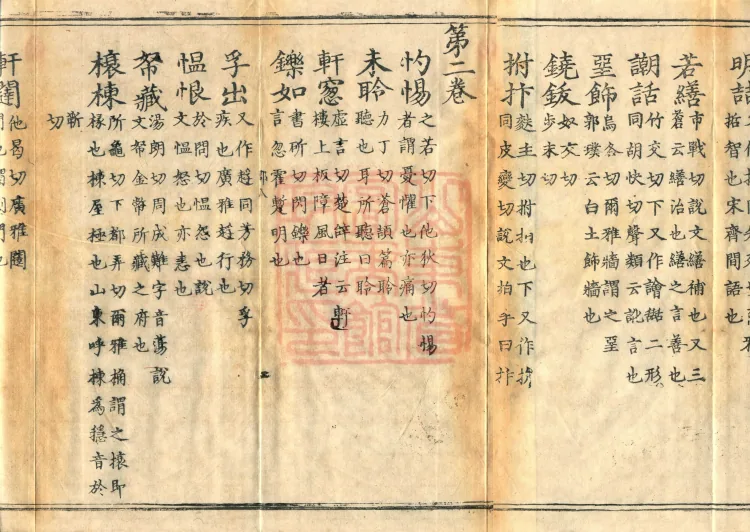 明喆
哲智也宋齊間語也
若繕
市戰切説文繕補也又三
蒼云繕治也繕之言善也
謿話
竹交切下又作譮䛡二形
同胡快切聲類云訛言也
堊飾
烏各切爾雅牆謂之堊
郭璞云白土飾牆也
鐃鈸
奴交切
步末切
拊抃
麩主切拊拍也下又作拚
同皮變切説文拍手曰抃
第二卷
灼惕
之若切下他狄切灼惕
者謂憂懼也亦痛也
未聆
力丁切蒼頡篇聆
聽也耳所聽曰聆
軒窓
虛言切楚辭注云軒
樓上板障風日者
鑠如
書所切閃鑠也
言忽霍蹔明也
孚出
又作同芳務切孚
疾也廣雅行也
慍恨
於問切慍怨也説
文慍怒也亦恚也
帑藏
湯朗切周成難字音蕩説
文帑金帛所藏之府也
榱棟
所龜切下都弄切爾雅桷謂之榱即
椽也棟屋極也山東呼棟為穩音於
靳
切
軒闥
他曷切廣雅闥